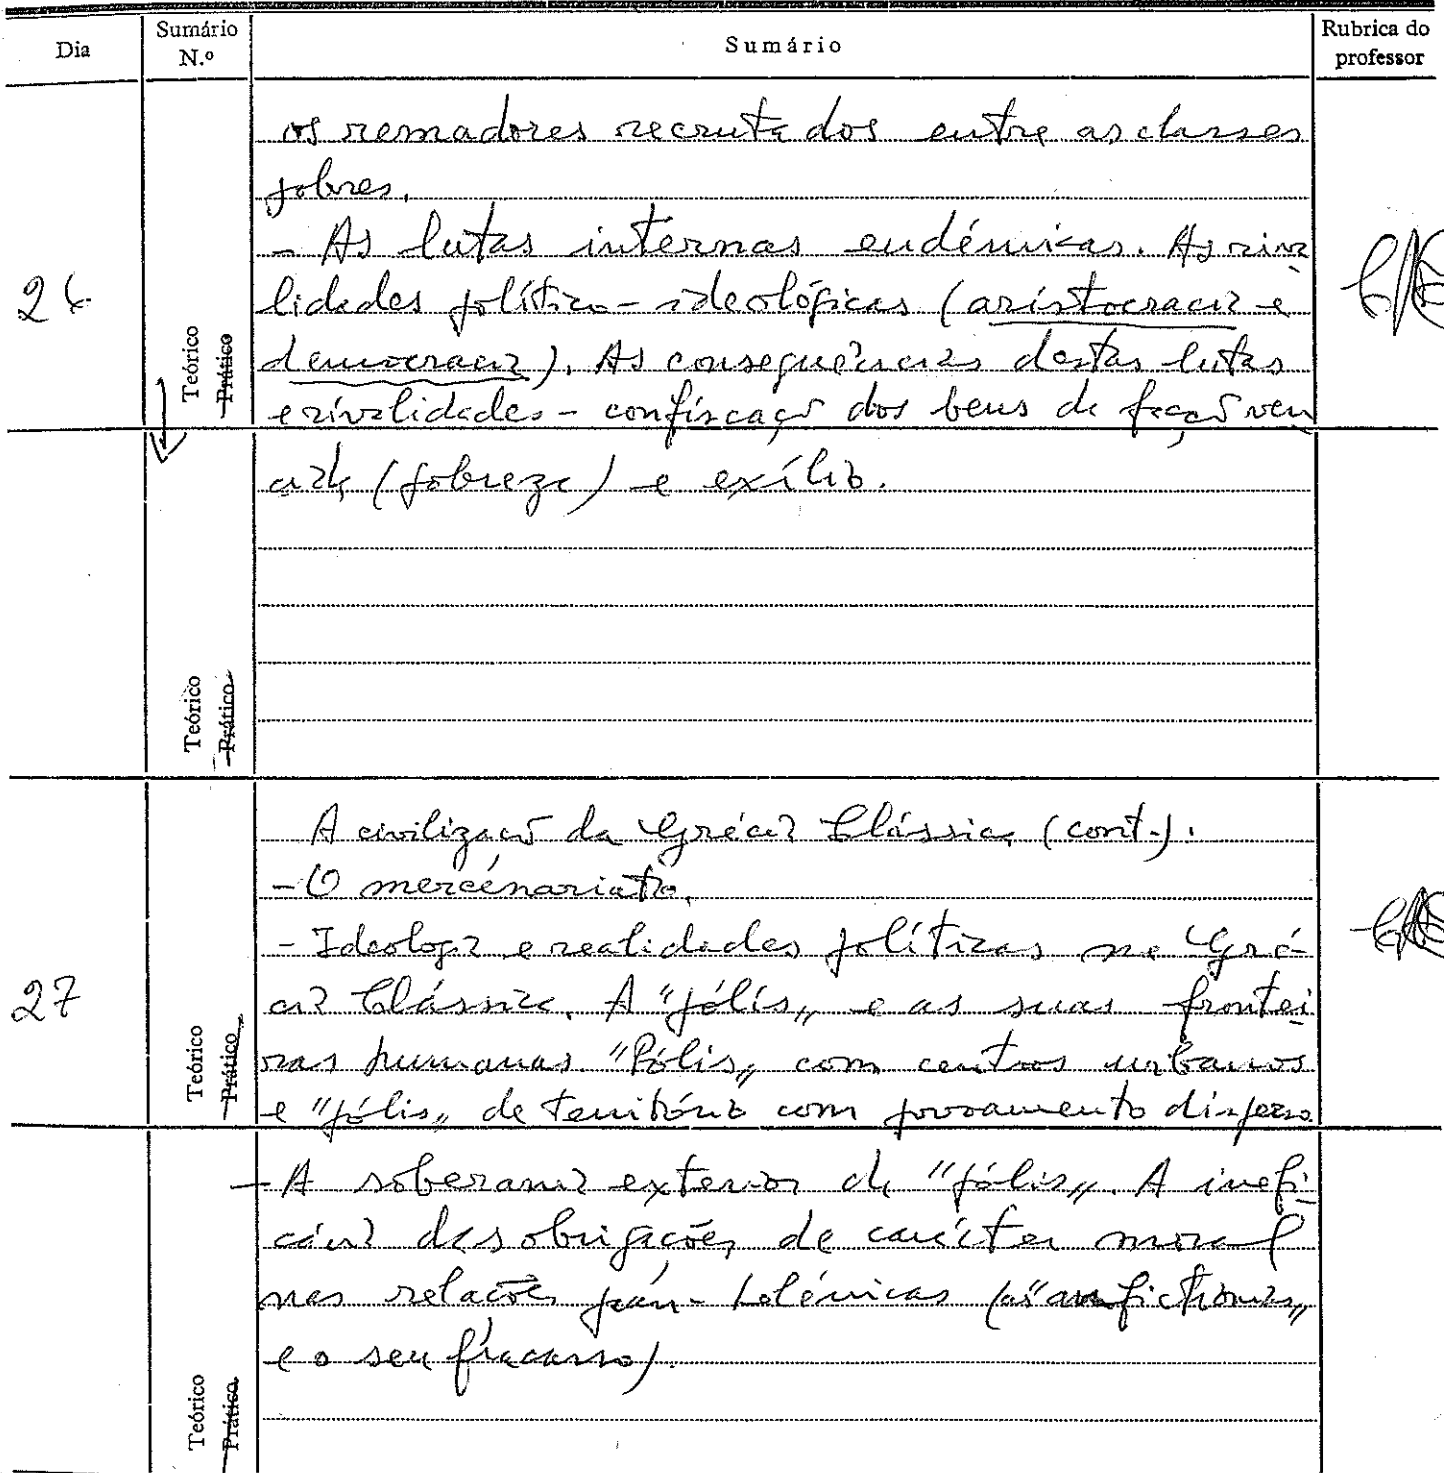 Dia
Sumário N.º
Sumário
Rubrica do professor
os remadores recrutados entre as classes
pobres.
- As lutas internas endémicas. As riva
26
lidades político-ideológicas (aristocracia e
democracia). As consequências destas lutas
e rivalidades - confiscação dos bens da facção ven
Teórico
Prático
cida (pobreza) e exílio.
Teórico
Prático
A civilização da Grécia Clássica (cont.):
- O mercenariato.
- Ideologia e realidades políticas na Gré-
27
cia Clássica. A "pólis" e as suas frontei
ras humanas. "Pólis" com centros urbanos
e "pólis" de território com povoamento disperso
Teórico
Prático
- A soberania exterior da "pólis". A inefi
cácia das obrigações de carácter moral
nas relações pan-helénicas (as "anfictionias"
e o seu fracasso).
Teórico
Prático